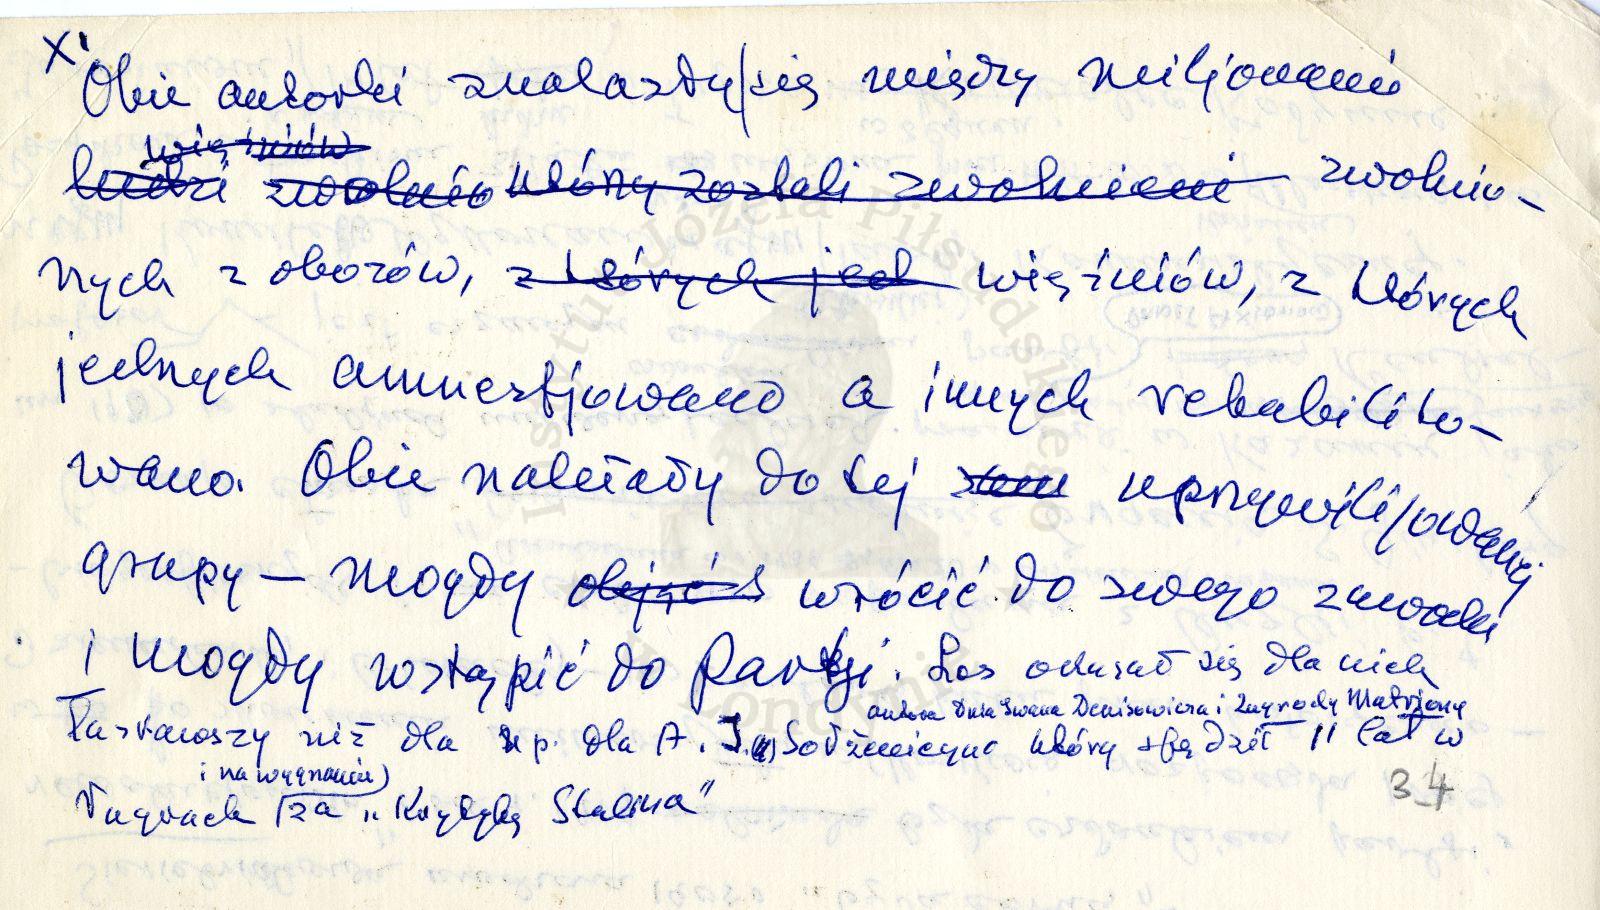 x) Obie autorki znalazły się między miljonami
więźniów
ludzi zwolnio którzy zostali zwolnieni zwolnio-
nych z obozów, z których jed więźniów, z których
jednych amnestjowano a innych rehabilito-
wano. Obie należały do tej uprzywilijowanej
grupy – mogły objąć wrócić do swego zawodu
i mogły wstąpić do Partji. Los okazał się dla nich
autora Dnia Iwana Denisowicza i Zagrody Matriony
łaskawszy niż dla np. dla A. I. Sołżenicyna który spędził 11 lat w
i na wygnaniu)
łagrach (za "Krytykę Stalina"
34
Instytut Józefa Piłsudskiego
w Londynie